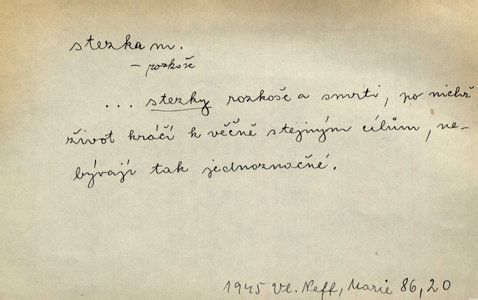 stezka m.
– rozkoše
... stezky rozkoše a smrti, po nichž
život kráčí k věčně stejným cílům, ne-
bývají tak jednoznačné.
1945 Vl. Neff, Marie 86, 20